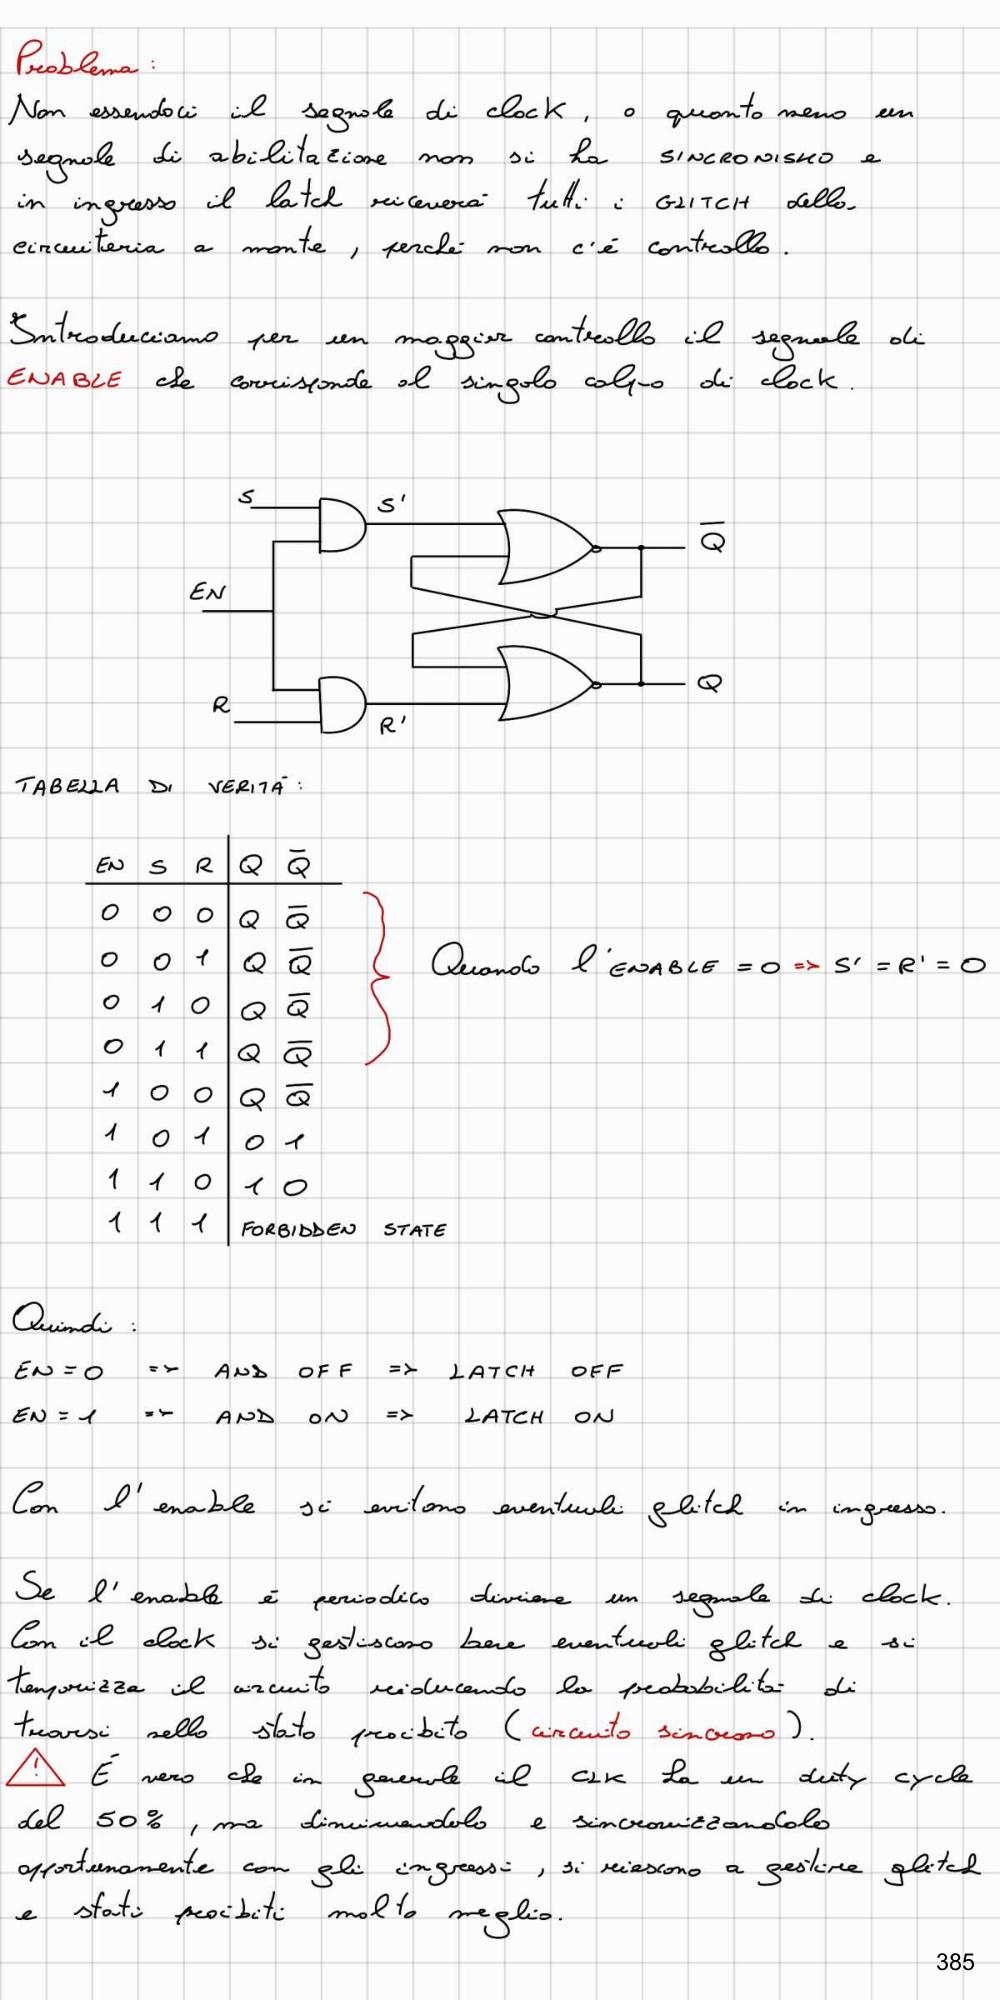 Problema:
Non essendoci il segnale di clock, o quanto meno un
segnale di abilitazione non si ha SINCRONISMO e
in ingresso il latch riceverà tutti i GLITCH della
circuiteria a monte, perché non c'è controllo.
Introduciamo per un maggior controllo il segnale di
ENABLE che corrisponde al singolo colpo di clock.
S S'
Q̅
EN
Q
R R'
TABELLA DI VERITÀ:
EN S R Q Q̅
0 0 0 Q Q̅
0 0 1 Q Q̅
Quando l'ENABLE = 0 => S' = R' = 0
0 1 0 Q Q̅
0 1 1 Q Q̅
1 0 0 Q Q̅
1 0 1 0 1
1 1 0 1 0
1 1 1 FORBIDDEN STATE
Quindi:
EN = 0 => AND OFF => LATCH OFF
EN = 1 => AND ON => LATCH ON
Con l'enable si evitano eventuali glitch in ingresso.
Se l'enable è periodico diviene un segnale di clock.
Con il clock si gestiscono bene eventuali glitch e si
temporizza il circuito riducendo la probabilità di
trovarsi nello stato proibito (circuito sincrono).
! È vero che in generale il CLK ha un duty cycle
del 50%, ma diminuendolo e sincronizzandolo
opportunamente con gli ingressi, si riescono a gestire glitch
e stati proibiti molto meglio.
385